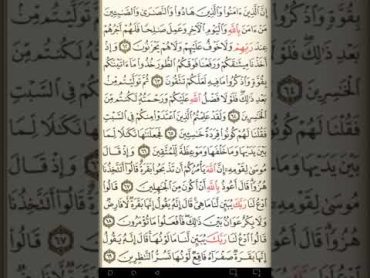 إِنَّ ٱلَّذِينَ ءَامَنُوا۟ وَٱلَّذِينَ هَادُوا۟ وَٱلنَّصَٰرَىٰ وَٱلصَّٰبِـِٔينَ
مَنْ ءَامَنَ بِٱللَّهِ وَٱلْيَوْمِ ٱلْءَاخِرِ وَعَمِلَ صَٰلِحًا فَلَهُمْ أَجْرُهُمْ
عِندَ رَبِّهِمْ وَلَا خَوْفٌ عَلَيْهِمْ وَلَا هُمْ يَحْزَنُونَ ٦٢ وَإِذْ
أَخَذْنَا مِيثَٰقَكُمْ وَرَفَعْنَا فَوْقَكُمُ ٱلطُّورَ خُذُوا۟ مَآ ءَاتَيْنَٰكُم
بِقُوَّةٍ وَٱذْكُرُوا۟ مَا فِيهِ لَعَلَّكُمْ تَتَّقُونَ ٦٣ ثُمَّ تَوَلَّيْتُم مِّنۢ
بَعْدِ ذَٰلِكَ فَلَوْلَا فَضْلُ ٱللَّهِ عَلَيْكُمْ وَرَحْمَتُهُۥ لَكُنتُم مِّنَ
ٱلْخَٰسِرِينَ ٦٤ وَلَقَدْ عَلِمْتُمُ ٱلَّذِينَ ٱعْتَدَوْا۟ مِنكُمْ فِى ٱلسَّبْتِ
فَقُلْنَا لَهُمْ كُونُوا۟ قِرَدَةً خَٰسِـِٔينَ ٦٥ فَجَعَلْنَٰهَا نَكَٰلًا لِّمَا
بَيْنَ يَدَيْهَا وَمَا خَلْفَهَا وَمَوْعِظَةً لِّلْمُتَّقِينَ ٦٦ وَإِذْ قَالَ
مُوسَىٰ لِقَوْمِهِۦٓ إِنَّ ٱللَّهَ يَأْمُرُكُمْ أَن تَذْبَحُوا۟ بَقَرَةً قَالُوٓا۟ أَتَتَّخِذُنَا
هُزُوًا قَالَ أَعُوذُ بِٱللَّهِ أَنْ أَكُونَ مِنَ ٱلْجَٰهِلِينَ ٦٧ قَالُوا۟
ٱدْعُ لَنَا رَبَّكَ يُبَيِّن لَّنَا مَا هِىَ قَالَ إِنَّهُۥ يَقُولُ إِنَّهَا بَقَرَةٌ لَّا فَارِضٌ
وَلَا بِكْرٌ عَوَانٌۢ بَيْنَ ذَٰلِكَ فَٱفْعَلُوا۟ مَا تُؤْمَرُونَ ٦٨
قَالُوا۟ ٱدْعُ لَنَا رَبَّكَ يُبَيِّن لَّنَا مَا لَوْنُهَا قَالَ إِنَّهُۥ يَقُولُ
إِنَّهَا بَقَرَةٌ صَفْرَآءُ فَاقِعٌ لَّوْنُهَا تَسُرُّ ٱلنَّٰظِرِينَ ٦٩